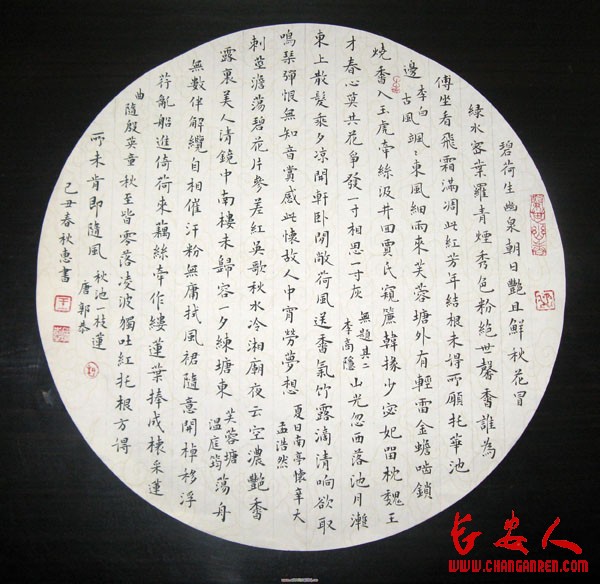 碧荷生幽泉朝日艷且鮮秋花冒
綠水密葉羅青煙秀色粉絕世馨香誰為
傳坐看飛霜滿凋此紅芳年結根未得所願托華池
邊 李白 古風 颯〻東風細雨來芙蓉塘外有輕雷金蟾嚙鎖
燒香入玉虎牽絲汲井回賈氏窺簾韓掾少宓妃留枕魏王
才春心莫共花爭發一寸相思一寸灰 無題其二 李商隱 山光忽西落池月漸
東上散髮乘夕涼開軒臥閑敞荷風送香氣竹露滴清响欲取
鳴琴彈恨無知音賞感此懷故人中宵勞夢想 夏日南亭懷辛大 孟浩然
刺莖澹蕩碧花片參差紅吳歌秋水冷湘廟夜云空濃艷香
露裏美人清鏡中南樓未歸客一夕練塘東 芙蓉塘 溫庭筠 蕩舟
無數伴解纜自相催汗粉無庸拭風裙隨意開棹移浮
荇亂船進倚荷來藕絲牽作縷蓮葉捧成杯采蓮
曲 隨殷英童 秋至皆零落凌波獨吐紅托根方得
所未肯即隨風 秋池一枝蓮 唐郭恭
己丑春秋惠書
长安人
www.CHANGANREN.com